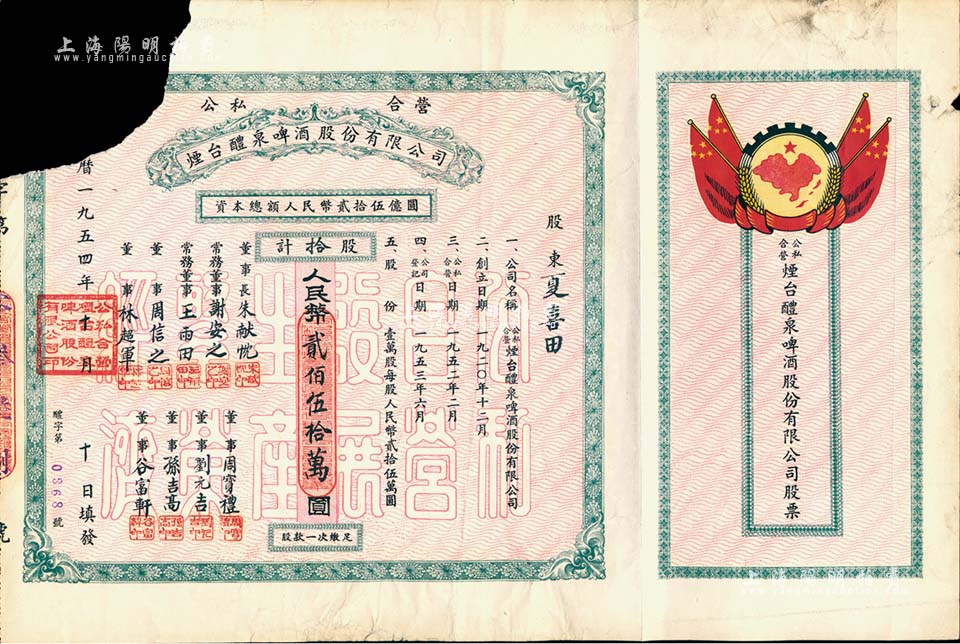 上海陽明拍賣
www.yangmingauction.com
公私 合營
煙台醴泉啤酒股份有限公司
資本總額人民幣貳拾伍億圓
股東 夏喜田
一、公司名稱 公私合營 煙台醴泉啤酒股份有限公司
二、創立日期 一九二〇年十二月
三、公私合營 日期 一九五二年二月
四、公司登記 日期 一九五三年六月
五、股份 壹萬股每股人民幣貳拾伍萬圓
計拾股
人民幣貳佰伍拾萬圓
足繳次一款股
董事長 朱献忱
常務董事 謝安之
常務董事 王雨田
董事 周信之
董事 林超軍
董事 周寶禮
董事 劉元吉
董事 孫吉高
董事 谷富軒
曆一九五四年十二月十日填發
醴字第 0368 號
字第
號
公私合營煙台醴泉啤酒股份有限公司印
公私合營 煙台醴泉啤酒股份有限公司股票